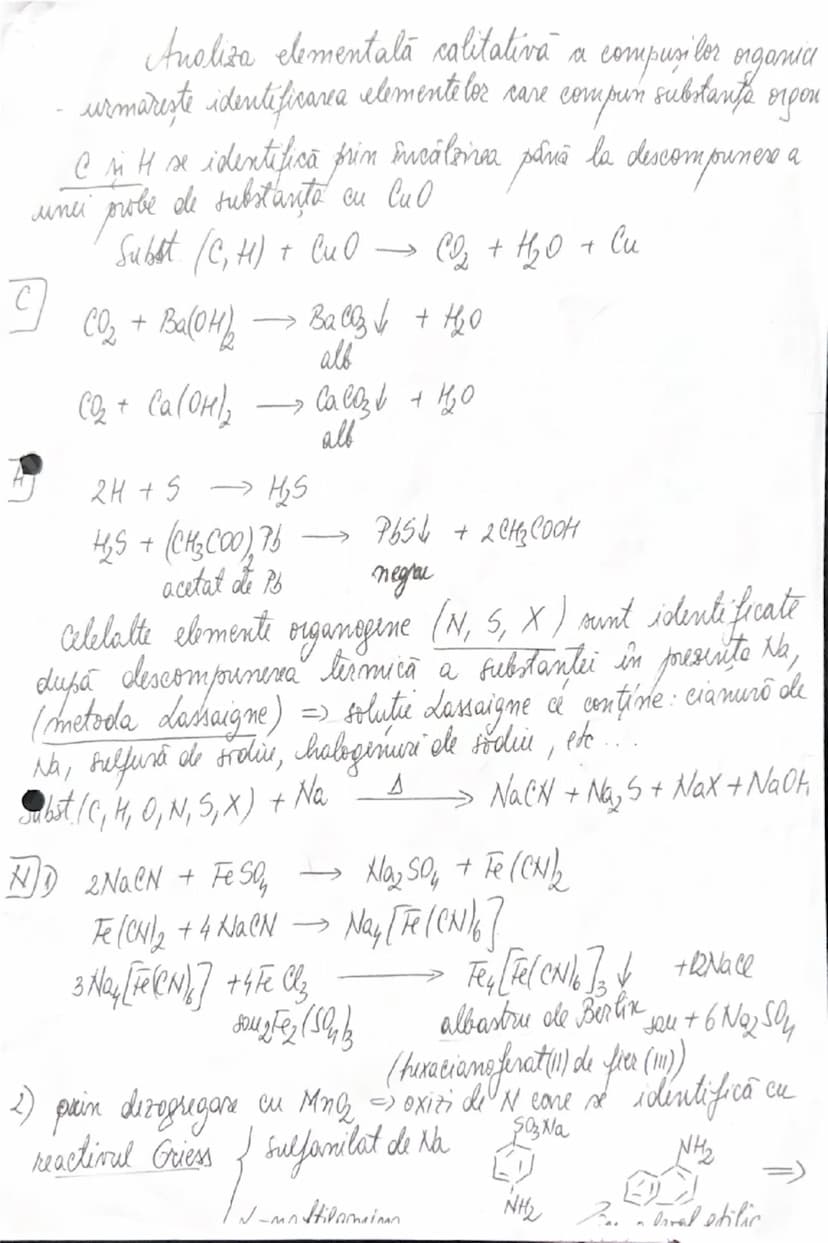 Analiza elementală calitativă a compușilor organici
- urmărește identificarea elementelor care compun substanța organ
C și H se identifică prin încălzirea până la descompunere a
unei probe de substanță cu CuO
Subst (C, H) + CuO → CO₂ + H₂O + Cu
C
CO₂ + Ba(OH)₂ → BaCO₃↓ + H₂O
alb
CO₂ + Ca(OH)₂ → CaCO₃↓ + H₂O
alb
H
2H + S → H₂S
H₂S + (CH₃COO)₂Pb → PbS↓ + 2CH₃COOH
acetat de Pb negru
Celelalte elemente organogene (N, S, X) sunt identificate
după descompunerea termică a substanței în prezența Na,
(metoda Lassaigne) => soluție Lassaigne ce conține: cianură de
Na, sulfură de sodiu, halogenuri de sodiu, etc...
Subst. (C, H, O, N, S, X) + Na —Δ→ NaCN + Na₂S + NaX + NaOH
N 1) 2NaCN + FeSO₄ → Na₂SO₄ + Fe(CN)₂
Fe(CN)₂ + 4NaCN → Na₄[Fe(CN)₆]
3Na₄[Fe(CN)₆] + 4FeCl₃ → Fe₄[Fe(CN)₆]₃↓ + 12NaCl
sau 2Fe₂(SO₄)₃ albastru de Berlin sau + 6Na₂SO₄
(hexacianoferat(II) de fier (III))
2) prin dezagregare cu MnO₂ => oxizi de N care se identifică cu
reactivul Griess { sulfanilat de Na SO₃Na NH₂ NH₂ =>